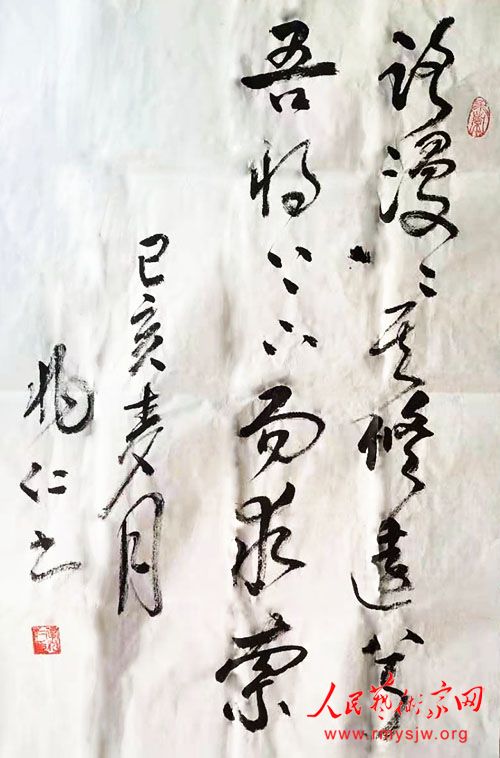 路漫々其修遠兮
吾将上下而求索
己亥麦月
仁书
人民藝術家网
www.rmysjw.org